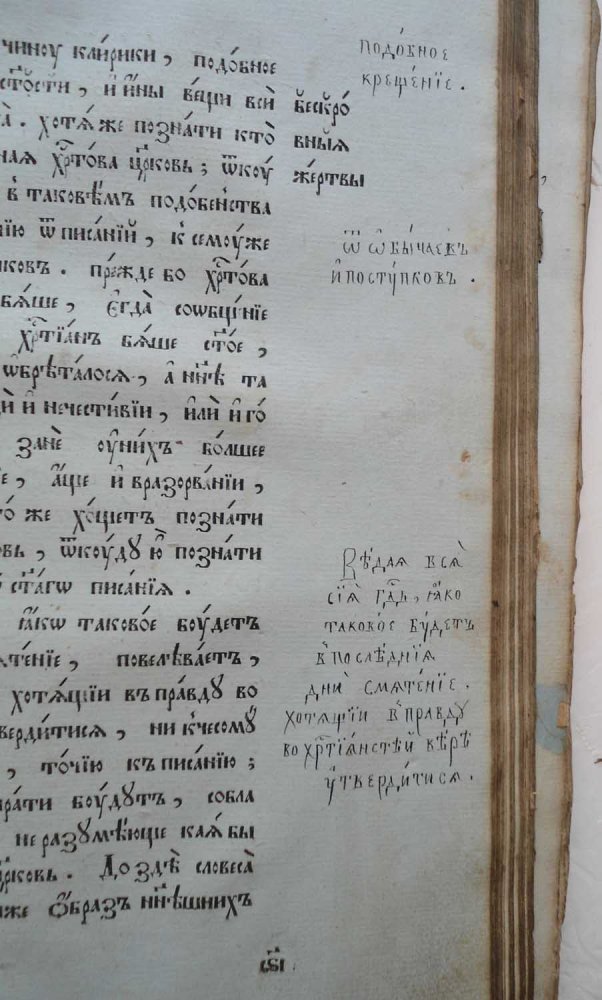 чиноу кли́рики, подо́бное
и҆ и҆́ны ве́щи всѝ
. хотѧ́ же позна́ти кто̀
хрⷭ҇то́ва цр҃ковь; ѿкоу́
в̾ таковѣ́мъ подо́бенства
ѿ писа́нїй, к̾ семоу́же
пре́жде бо хрⷭ҇то́ва
бѧ́ше, є҆гда̀ соѡбще́нїе
хрⷭ҇тїа́нъ бѧ́ше ст҃о́е,
ѡ҆брѣта́лосѧ, а҆ нн҃ѣ та
и҆ нечести́вїи, и҆лѝ и҆ го́
занѐ оу҆ ни́хъ бо́лшее
а҆́ще и҆ в разорва́нїи,
же хо́щетъ позна́ти
ѿкоу́дꙋ ю҆̀ позна́ти
ст҃а́гѡ писа́нїѧ.
ꙗ҆́кѡ таково́е боу́детъ
повелѣва́етъ,
хотѧ́щїи въ пра́вдꙋ во
ни к̾чесомꙋ́
, то́чїю къ писа́нїю;
боу́дꙋтъ, собла
не разꙋмѣ́юще ка́ѧ бы
До здѣ̀ словеса̀
ѻ҆́бразъ нн҃ѣшнихъ
подо́бное
креще́нїе.
бескро́
вныѧ
же́ртвы
ѿ ѡ҆бы́чаєвъ
и҆ посту́пковъ.
Вѣ́даѧ всѧ̀
сїѧ̀ гдⷭ҇ь, ꙗ҆́ко
таково́е бу́детъ
в̾ послѣ́днїѧ
днѝ смѧте́нїе.
хотѧ́щїи в̾ пра́вду
во хрⷭ҇тїа́нстѣй вѣ́рѣ
у҆тверди́тисѧ.